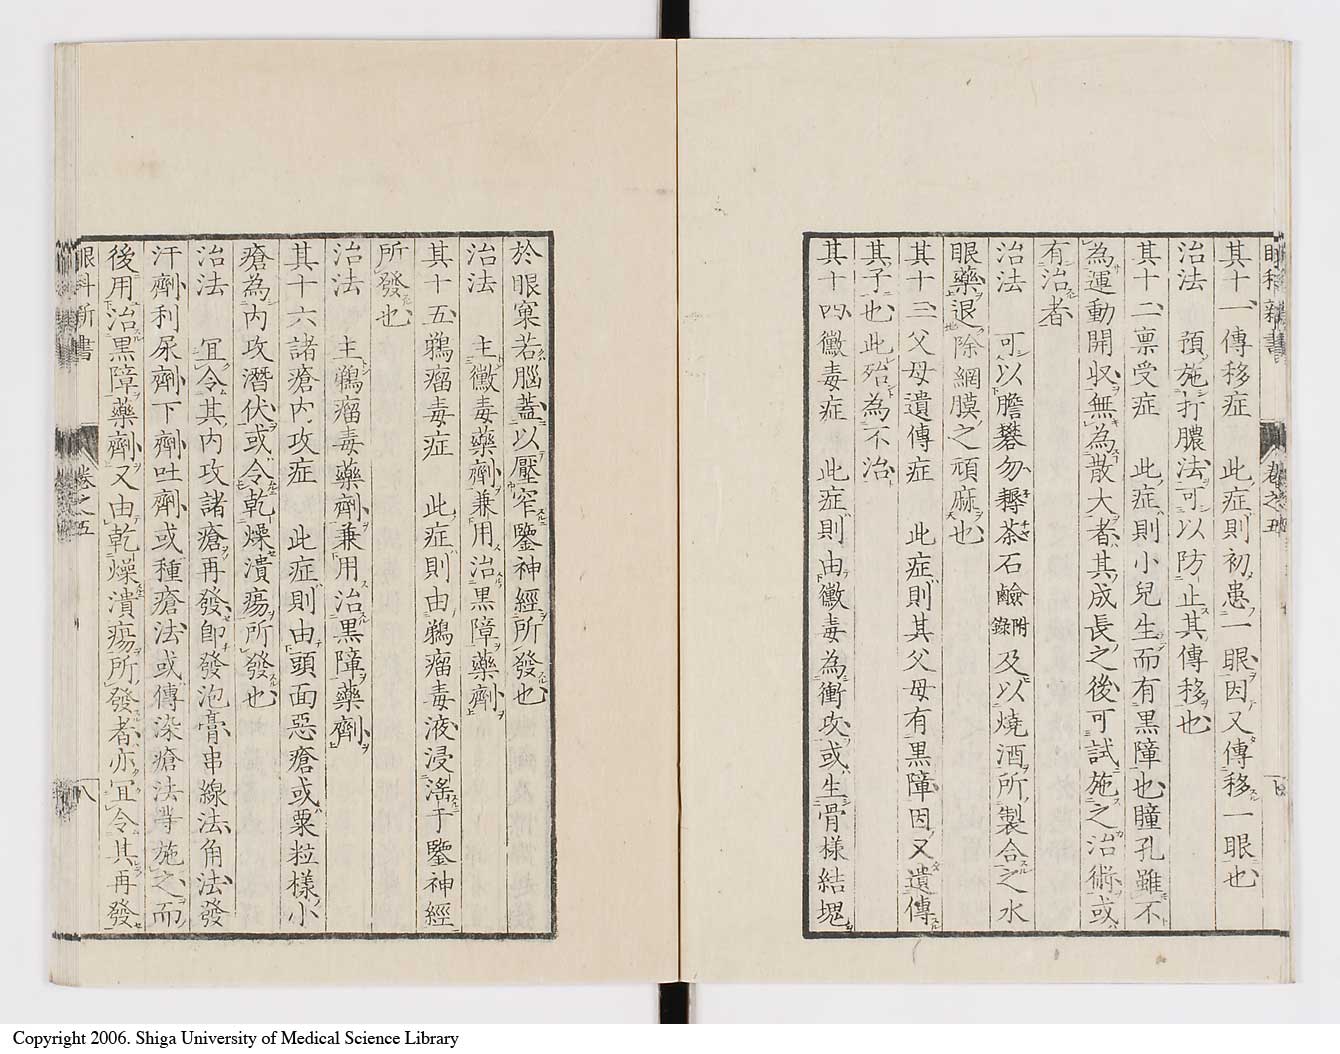 其十一傳移症 此症則初患一眼因又傳移一眼也
治法 預施打膿法可以防止其傳移也
其十二稟受症 此症則小兒生而有黒障也瞳孔雖不
為運動開收無為散大者其成長之後可試施之治術或
有治者
治法 可以膽礬勿耨茶石鹼附錄及以燒酒所製合之水
眼藥退除網膜之頑麻也
其十三父母遺傳症 此症則其父母有黒障因又遺傳
其子也此殆為不治
其十四黴毒症 此症則由黴毒為衝攻或生骨様結塊
於眼窠若腦蓋以壓窄鑒神經所發也
治法 主黴毒藥劑兼用治黒障藥劑
其十五鵜瘤毒症 此症則由鵜瘤毒液浸滛于鑒神經
所發也
治法 主鵜瘤毒藥劑兼用治黒障藥劑
其十六諸瘡内攻症 此症則由頭面惡瘡或粟粒様小
瘡為内攻潛伏或令乾燥潰瘍所發也
治法 冝令其内攻諸瘡再發卽發泡膏串線法角法發
汗劑利尿劑下劑吐劑或種瘡法或傳染瘡法等施之而
後用治黒障藥劑又由乾燥潰瘍所發者亦冝令其再發
眼科新書 卷之五 八
Copyright 2006. Shiga University of Medical Science Library